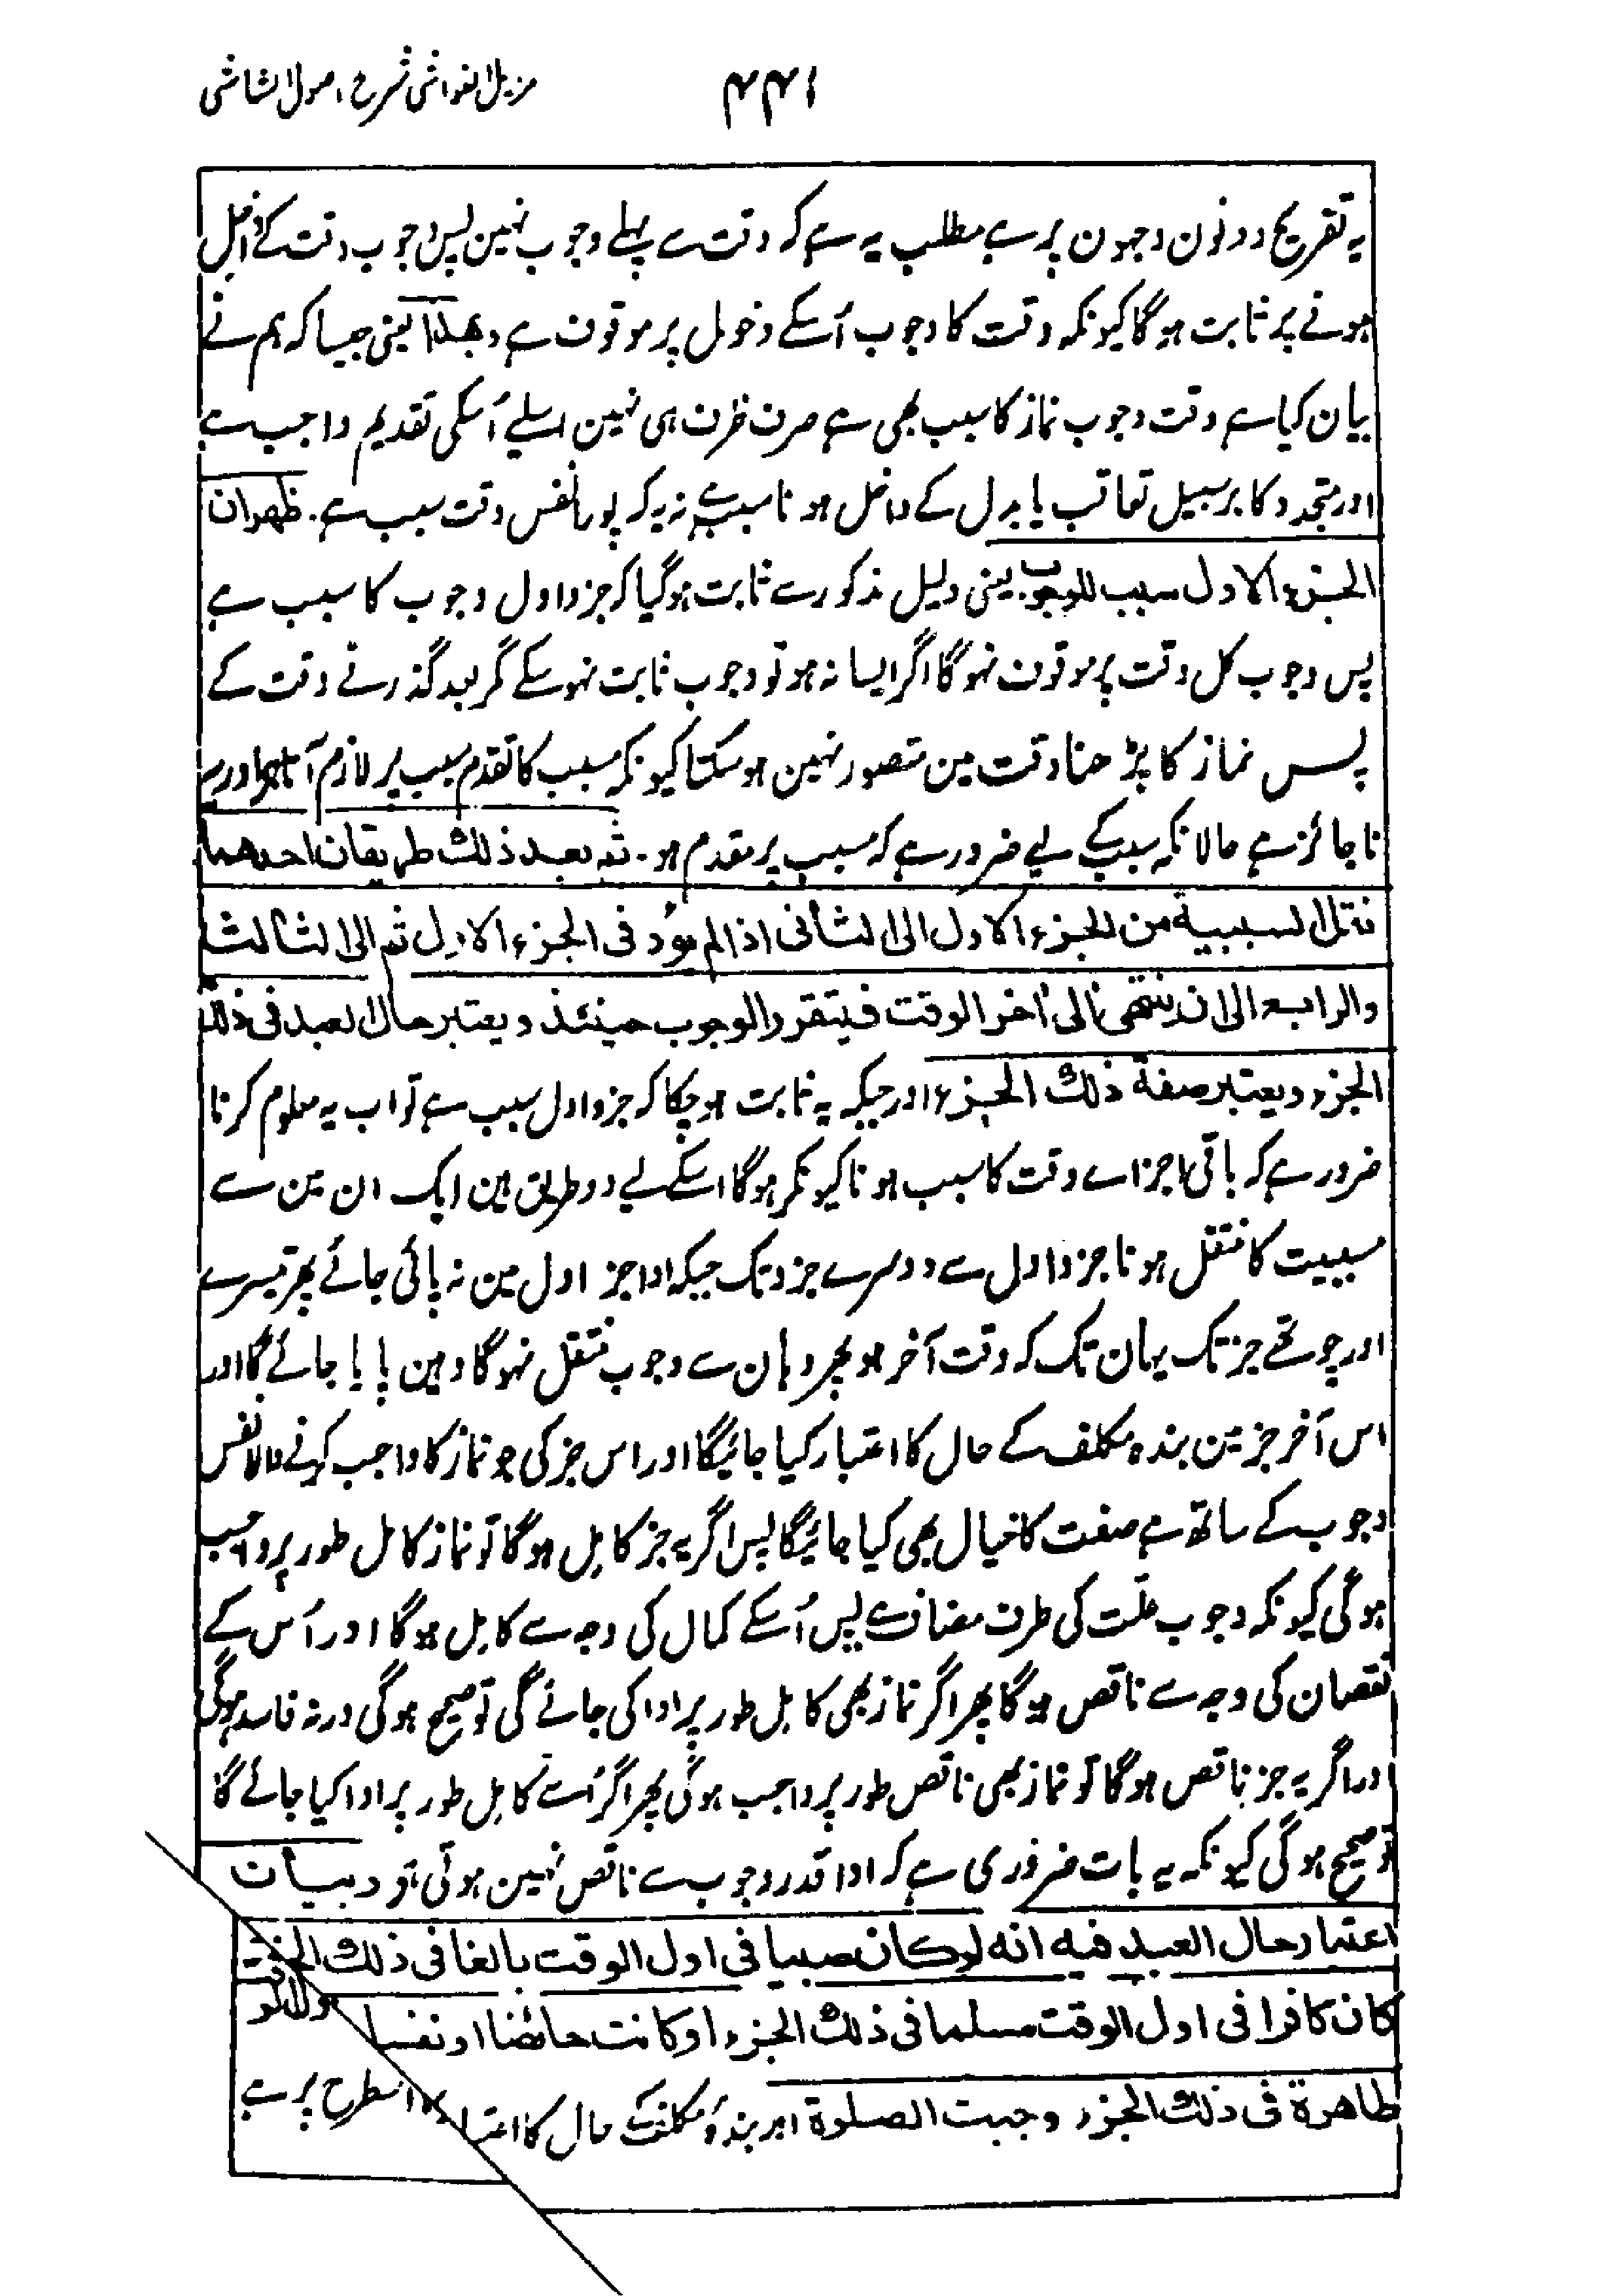 مزیل الغواشی شرح اصول الشاشی
۴۴۱
یہ تفریع دونون وجہون پر ہے مطلب یہ ہے کہ وقت سے پہلے وجوب نہین پس وجوب وقت کے داخل
ہونے پر ثابت ہوگا کیونکہ وقت کا وجوب اُسکے دخول پر موقوف ہے وبھذا یعنی جیسا کہ ہم نے
بیان کیا ہے وقت وجوب نماز کا سبب بھی ہے صرف ظرف ہی نہین اسلیے اُسکی تقدیم واجب ہے
اور متجدد کا برسبیل تعاقب یا بدل کے داخل ہونا سبب ہے نہ یہ کہ پورا نفس وقت سبب ہے۔ ظھر ان
الجزء الاول سبب للوجوب یعنی دلیل مذکور سے ثابت ہوگیا کہ جزو اول وجوب کا سبب ہے
پس وجوب کل وقت پر موقوف نہوگا اگر ایسا نہ ہو تو وجوب ثابت نہوسکے گر بعد گذرنے وقت کے
پس نماز کا پڑھنا وقت مین متصور نہین ہوسکتا کیونکہ مسبب کا تقدم سبب پر لازم آتا ہے اور یہ
ناجائز ہے حالانکہ سبب کے لیے ضرور ہے کہ مسبب پر مقدم ہو۔ ثم بعد ذلک طریقان احدھما
نقل السببیة من الجزء الاول الی الثانی اذا لم یؤد فی الجزء الاول ثم الی الثالث
والرابع الی ان ینتھی الی اٰخر الوقت فیتقرر الوجوب حینئذ ویعتبر حال العبد فی ذلک
الجزء ویعتبر صفة ذلک الجزء اور جبکہ یہ ثابت ہوچکا کہ جزو اول سبب ہے تو اب یہ معلوم کرنا
ضرور ہے کہ باقی اجزاے وقت کا سبب ہونا کیونکر ہوگا اسکے لیے دو طریق ہین ایک ان مین سے
سببیت کا منتقل ہونا جزو اول سے دوسرے جزو تک جبکہ ادا جز اول مین نہ پائی جائے پھر تیسرے
اور چوتھے جز تک یہان تک کہ وقت آخر ہو پھر وہان سے وجوب منتقل نہوگا وہین پایا جائے گا اور
اس آخر جز مین بندہ مکلف کے حال کا اعتبار کیا جائیگا اور اس جز کی جو نماز کا واجب کرنے والا نفس
وجوب کے ساتھ ہے صفت کا خیال بھی کیا جائیگا پس اگر یہ جز کامل ہوگا تو نماز کامل طور پر واجب
ہوگی کیونکہ وجوب علّت کی طرف مضاف ہے پس اُسکے کمال کی وجہ سے کامل ہوگا اور اُس کے
نقصان کی وجہ سے ناقص ہوگا پھر اگر نماز بھی کامل طور پر ادا کی جائے گی تو صحیح ہوگی ورنہ فاسد ہوگی
اور اگر یہ جز ناقص ہوگا تو نماز بھی ناقص طور پر واجب ہوگی پھر اگر اُسے کامل طور پر ادا کیا جائے گا
تو صحیح ہوگی کیونکہ یہ بات ضروری ہے کہ ادا قدر وجوب سے ناقص نہین ہوئی ہو وبیان
اعتبار حال العبد فیه انه لوکان صبیا فی اول الوقت بالغا فی ذلک
کان کافرا فی اول الوقت مسلما فی ذلک الجزء اوکانت حائضا او نفسا
طاھرة فی ذلک الجزء وجبت الصلوة اور بندۂ مکلف کے حال کا اسطرح پر ہے